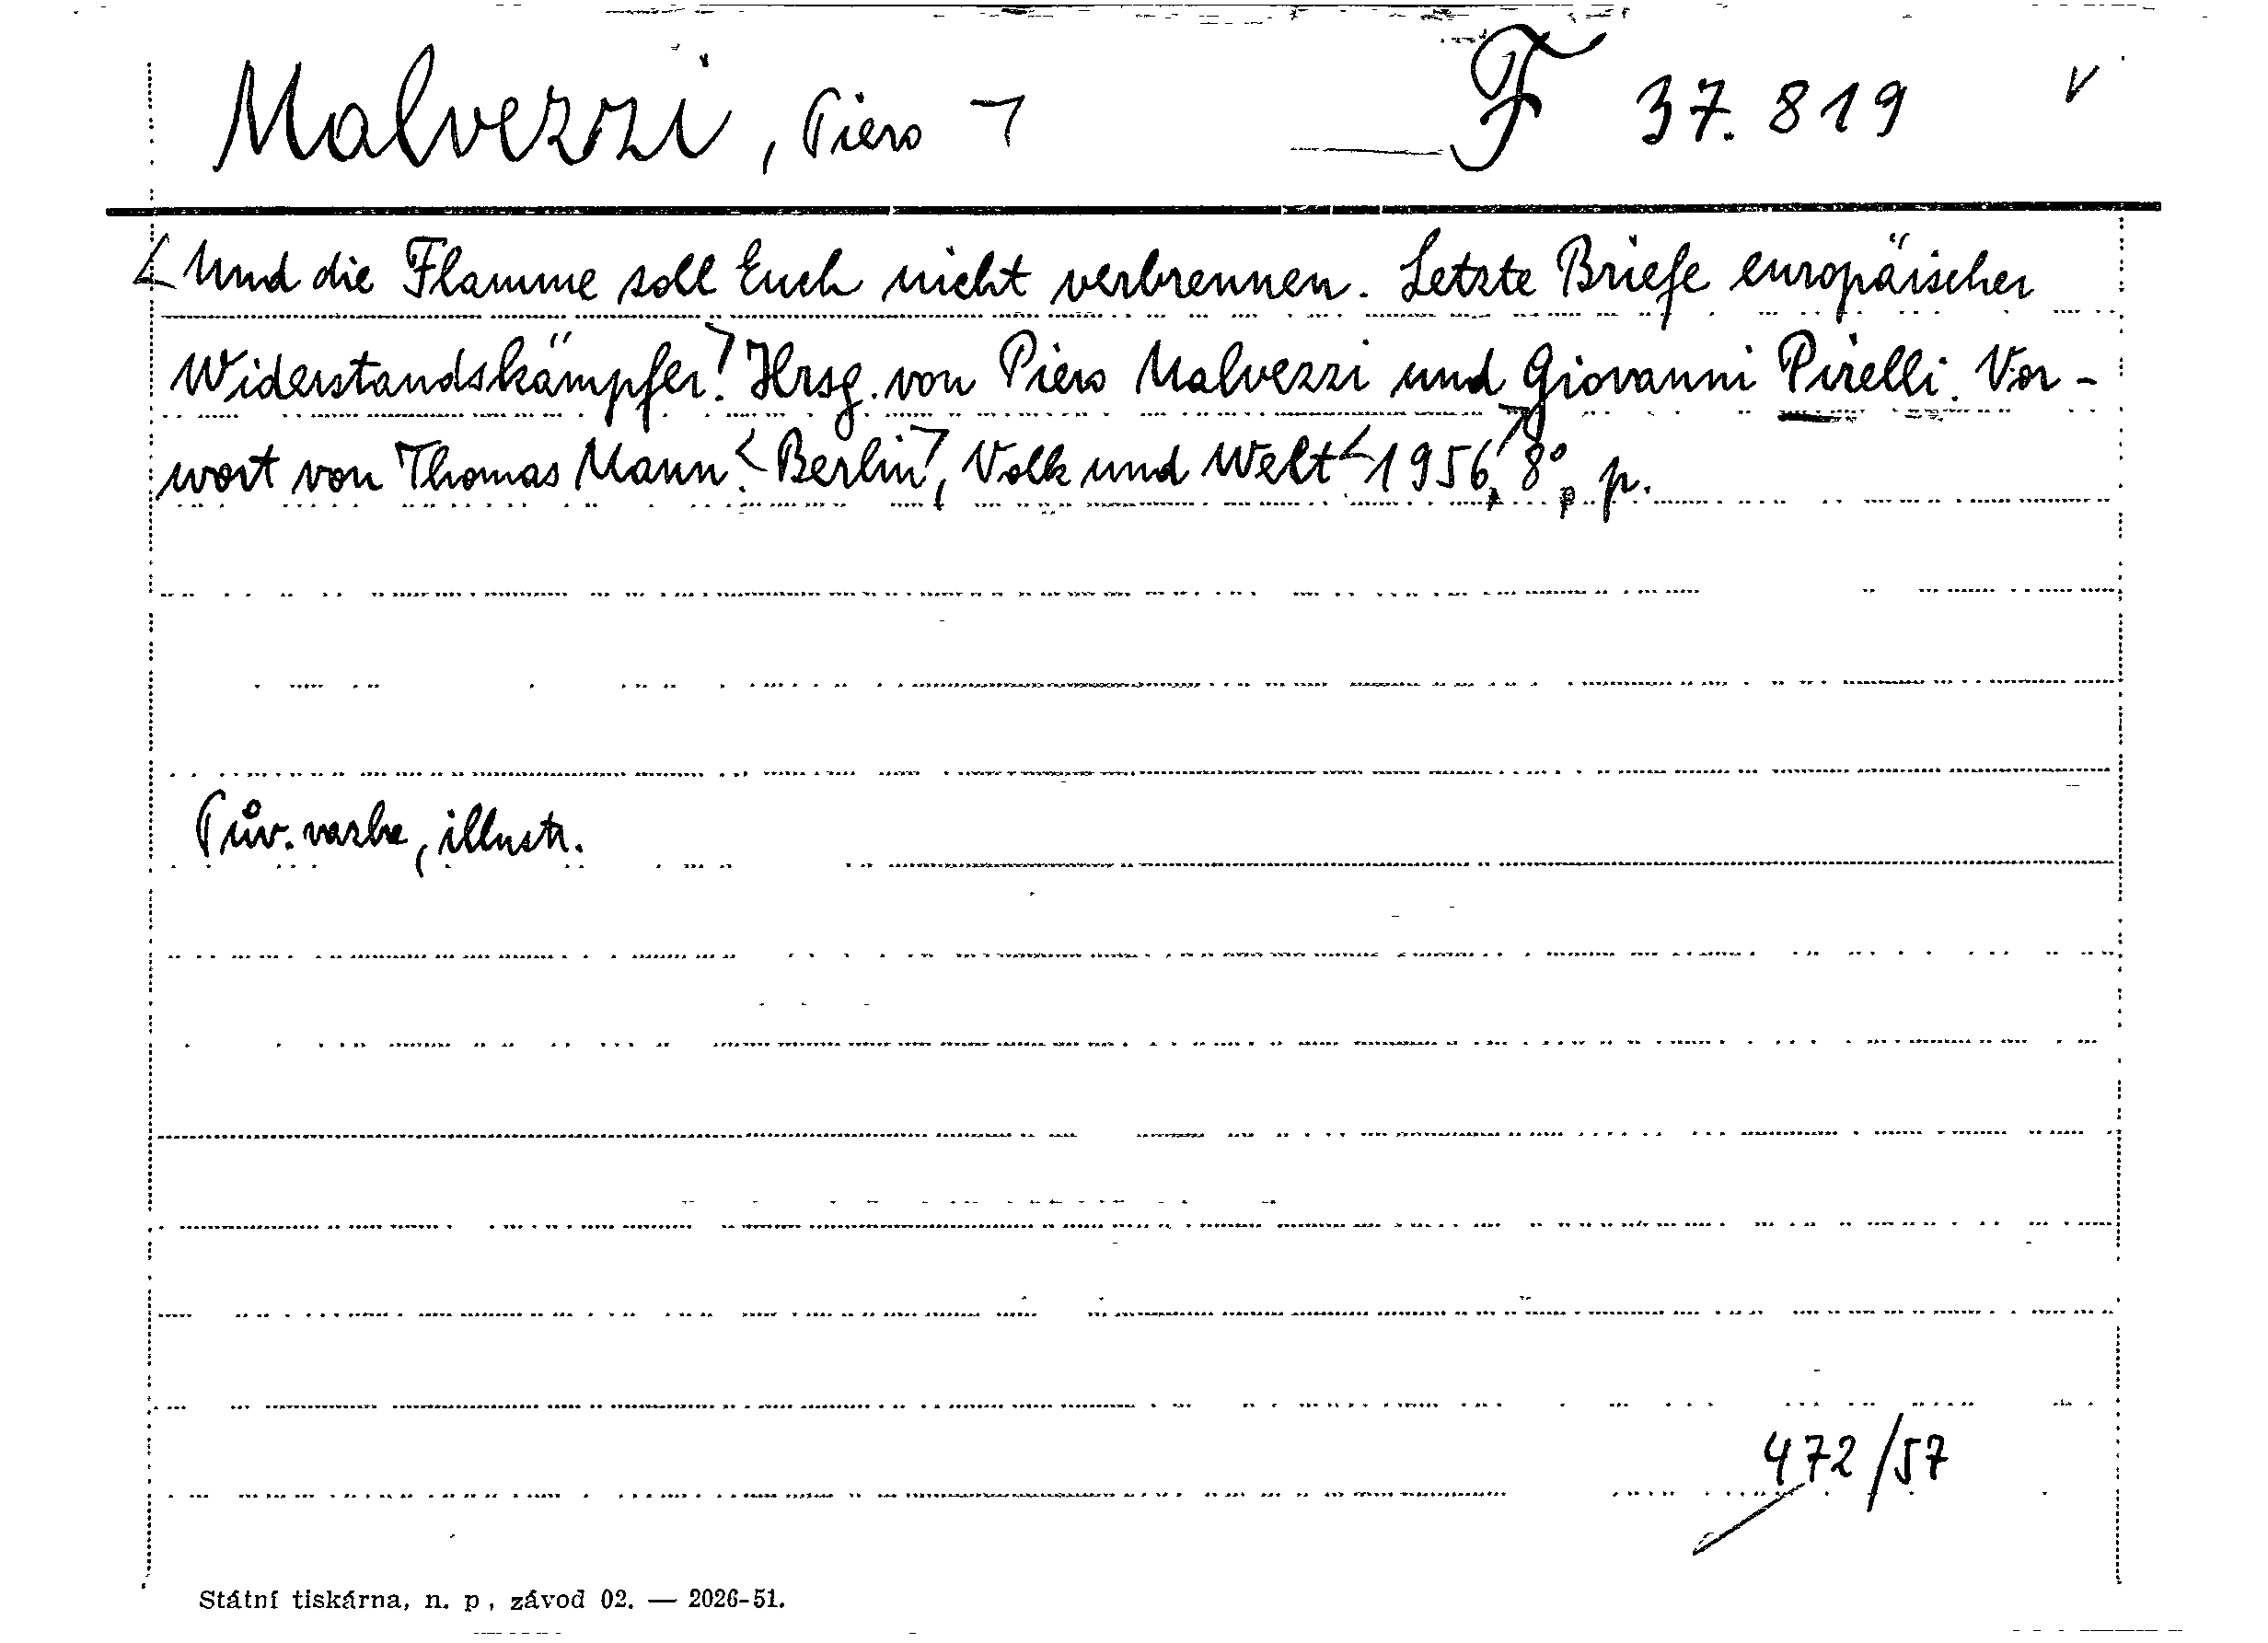 Malvezzi, Piero ¬ F 37.819 v
<Und die Flamme soll Euch nicht verbrennen. Letzte Briefe europäischer
Widerstandskämpfer.> Hrsg. von Piero Malvezzi und Giovanni Pirelli. Vor-
wort von Thomas Mann. <Berlin>, Volk und Welt <1956>, 8°, p.
Pův. vazba, illustr.
472/57
Státní tiskárna, n. p, závod 02. — 2026-51.